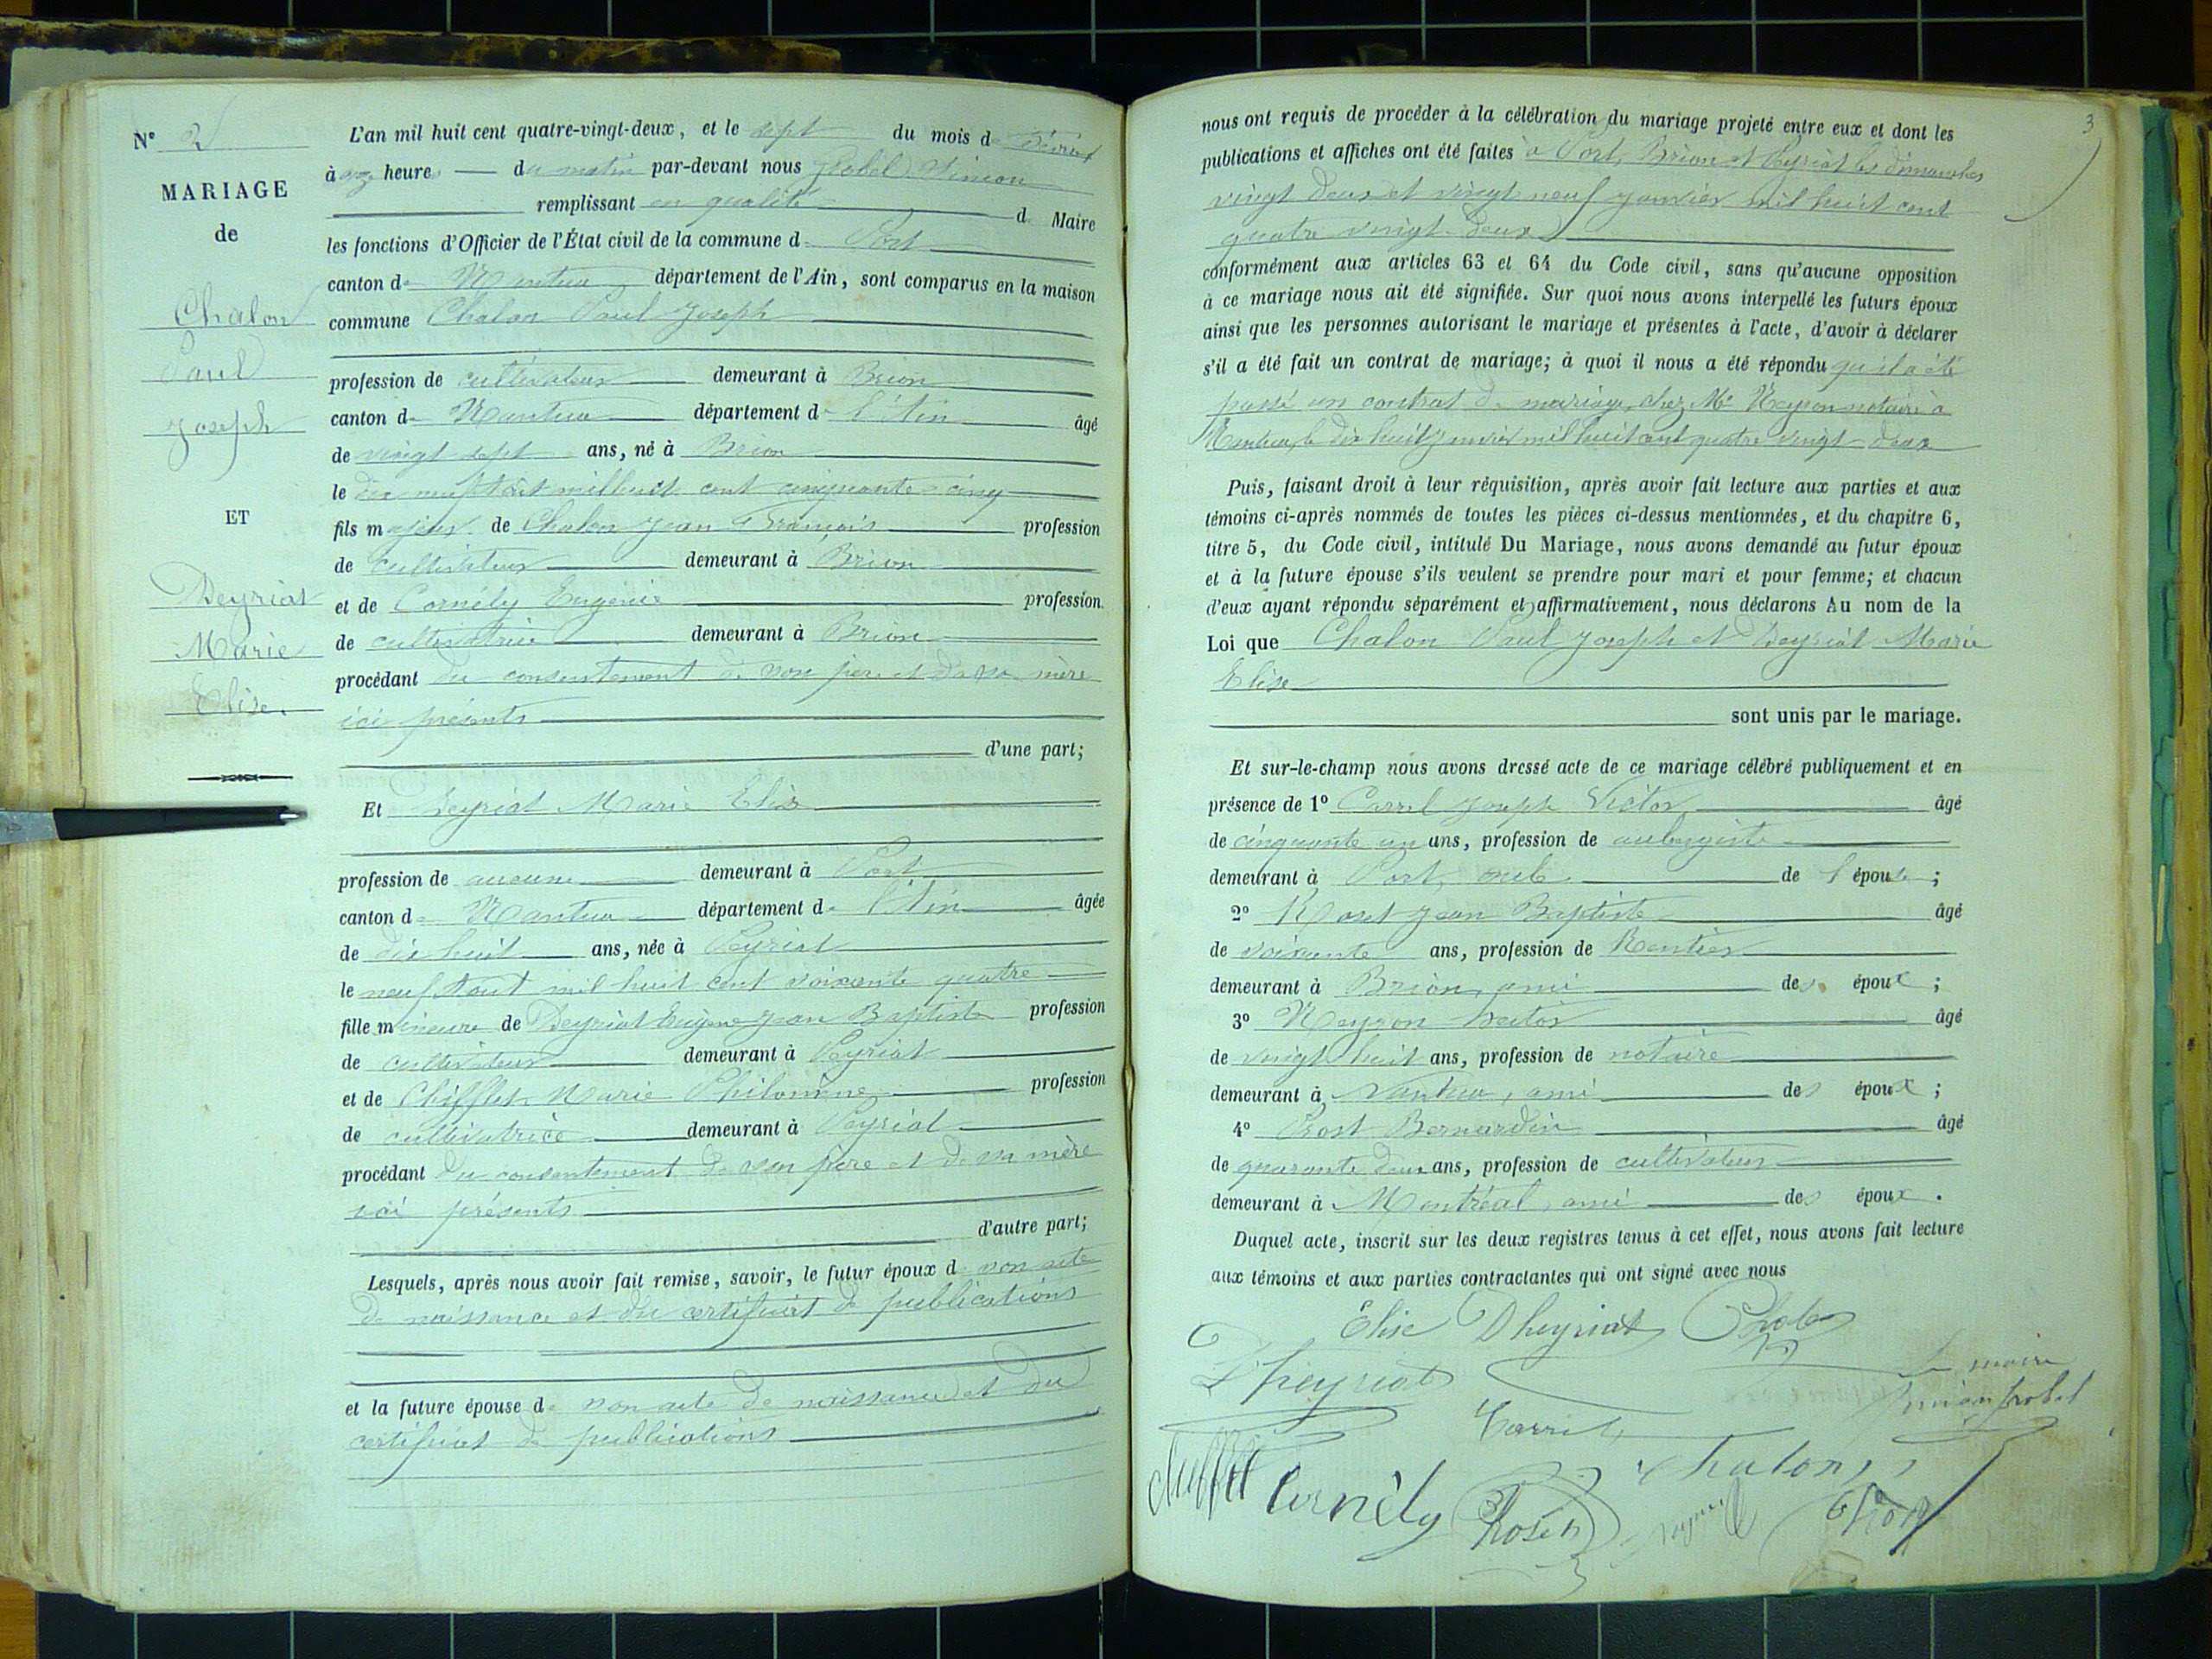 N° 2
MARIAGE
de
Chalon
Paul
Joseph
ET
Deyriat
Marie
Elise.
L'an mil huit cent quatre-vingt-deux, et le sept du mois de Février
à onze heures du matin par-devant nous Probel Siméon
remplissant en qualité d Maire
les fonctions d'Officier de l'État civil de la commune de Port
canton de Nantua département de l'Ain, sont comparus en la maison
commune Chalon Paul Joseph
profession de cultivateur demeurant à Brion
canton de Nantua département de l'Ain âgé
de vingt sept ans, né à Brion
le mil huit cent cinquante cinq
fils majeur de Chalon Jean François profession
de cultivateur demeurant à Brion
et de Cornély Eugénie profession
de cultivatrice demeurant à Brion
procédant du consentement de son père et de sa mère
ici présents
d'une part;
Et Deyriat Marie Elise
profession de aucune demeurant à Port
canton de Nantua département de l'Ain âgée
de dix huit ans, née à Peyriat
le neuf Août mil huit cent soixante quatre
fille mineure de Deyriat Eugène Jean Baptiste profession
de cultivateur demeurant à Peyriat
et de Chifflet Marie Philomène profession
de cultivatrice demeurant à Peyriat
procédant du consentement de son père et de sa mère
ici présents
d'autre part;
Lesquels, après nous avoir fait remise, savoir, le futur époux de son acte
de naissance et du certificat de publications
et la future épouse de son acte de naissance et du
certificat de publications
3
nous ont requis de procéder à la célébration du mariage projeté entre eux et dont les
publications et affiches ont été faites à Port, Brion et Peyriat les dimanches
vingt deux et vingt neuf janvier mil huit cent
quatre vingt-deux
conformément aux articles 63 et 64 du Code civil, sans qu'aucune opposition
à ce mariage nous ait été signifiée. Sur quoi nous avons interpellé les futurs époux
ainsi que les personnes autorisant le mariage et présentes à l'acte, d'avoir à déclarer
s'il a été fait un contrat de mariage; à quoi il nous a été répondu qu'il a été
passé un contrat de mariage, chez Me Neyron notaire à
Nantua, le dix huit janvier mil huit cent quatre vingt-deux
Puis, faisant droit à leur réquisition, après avoir fait lecture aux parties et aux
témoins ci-après nommés de toutes les pièces ci-dessus mentionnées, et du chapitre 6,
titre 5, du Code civil, intitulé Du Mariage, nous avons demandé au futur époux
et à la future épouse s'ils veulent se prendre pour mari et pour femme; et chacun
d'eux ayant répondu séparément et affirmativement, nous déclarons Au nom de la
Loi que Chalon Paul Joseph et Deyriat Marie
Elise
sont unis par le mariage.
Et sur-le-champ nous avons dressé acte de ce mariage célébré publiquement et en
présence de 1° Carrel Joseph Victor âgé
de cinquante un ans, profession de aubergiste
demeurant à Port, oncle de l'épouse;
2° Jean Baptiste âgé
de soixante ans, profession de Rentier
demeurant à Brion, ami des époux;
3° Neyron Hector âgé
de vingt huit ans, profession de notaire
demeurant à Nantua, ami des époux;
4° Prost Bernardin âgé
de quarante deux ans, profession de cultivateur
demeurant à Montréal, ami des époux.
Duquel acte, inscrit sur les deux registres tenus à cet effet, nous avons fait lecture
aux témoins et aux parties contractantes qui ont signé avec nous
Elise Dheyriat Chalon
Dheyriat Le maire
Carrel Siméon Probel
Chalon
Chifflet Cornély